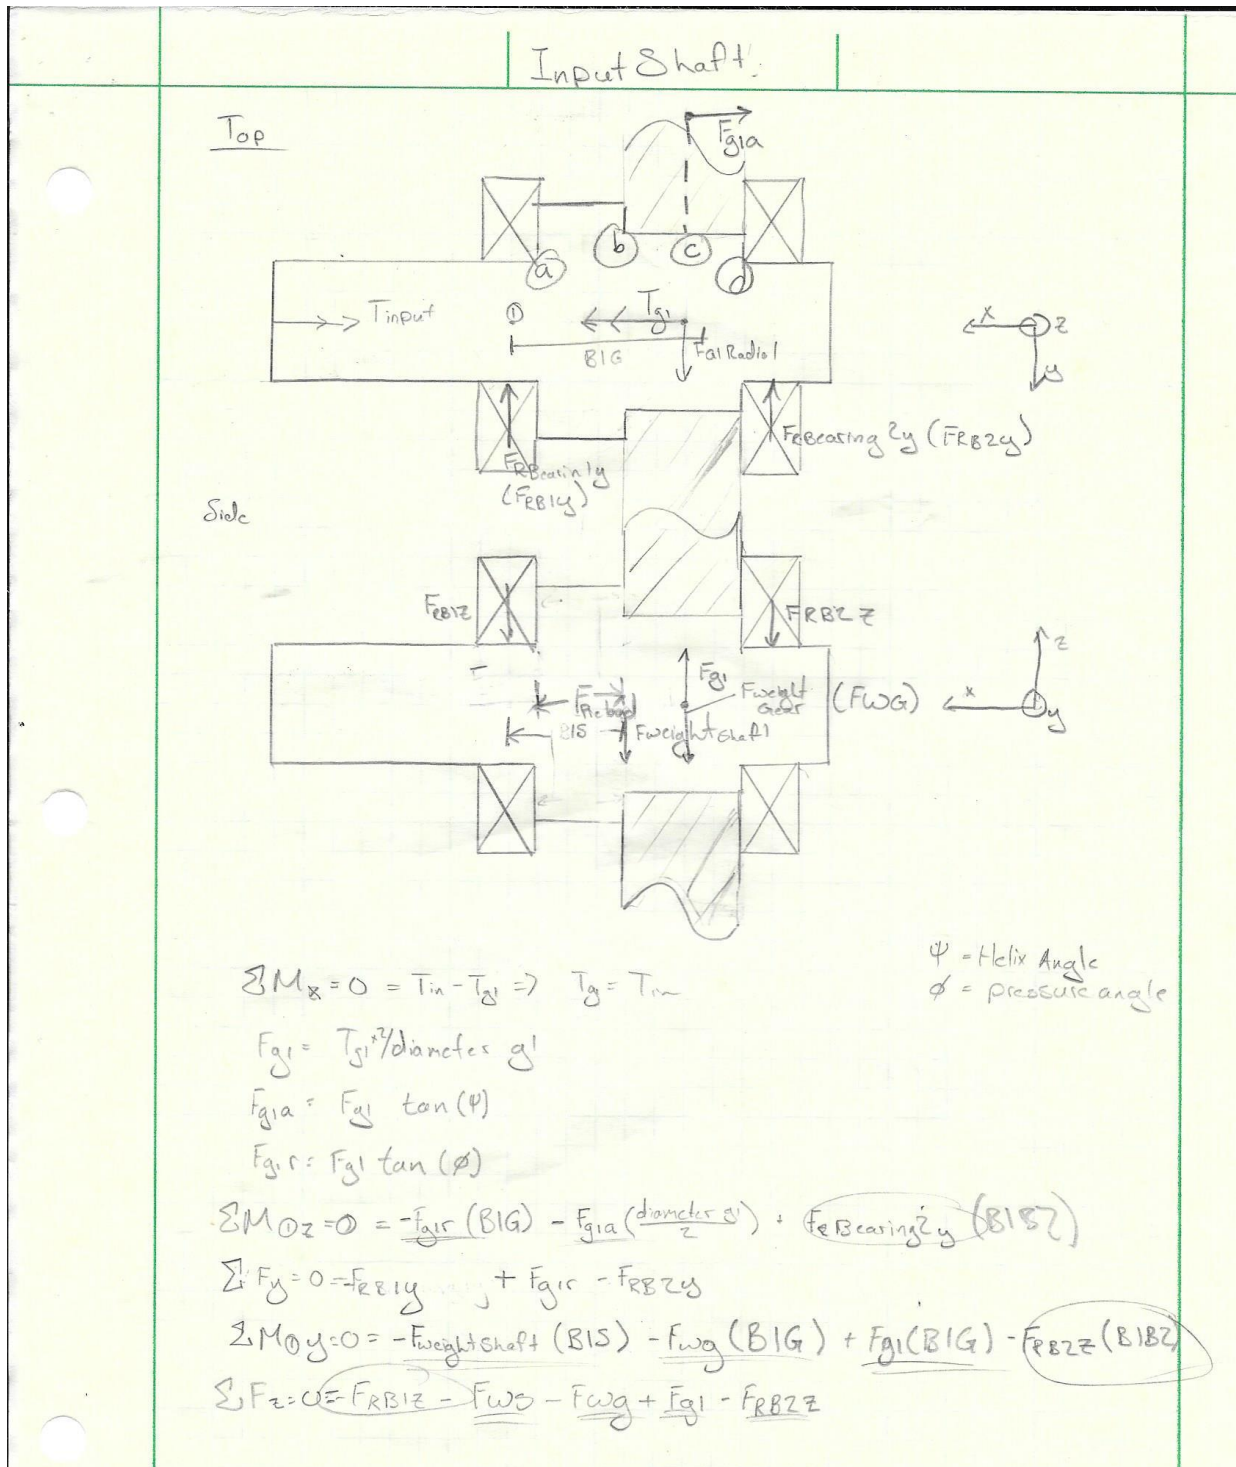 Input Shaft:
Top
Fg1a
b
c
a
d
Tinput
①
Tg1
B1G
Fg1Radial
x
z
y
FRBearing2y (FRB2y)
FRBearing1y
(FRB1y)
Side
FRB1Z
FRB2Z
z
Fg1
Fweight
Gear
(FWG)
x
y
B1S
Fweightshaft
Ψ = Helix Angle
ϕ = pressure angle
ΣMx = 0 = Tin - Tg1 => Tg = Tin
Fg1 = Tg1*2/diameter g1
Fg1a = Fg1 tan(Ψ)
Fg1r = Fg1 tan(ϕ)
ΣM①z = 0 = -Fg1r (B1G) - Fg1a (diameter g1/2) + FRBearing2y (B1B2)
ΣFy = 0 = -FRB1y + Fg1r - FRB2y
ΣM①y = 0 = -Fweightshaft (B1S) - Fwg (B1G) + Fg1 (B1G) - FRB2Z (B1B2)
ΣFz = 0 = -FRB1Z - Fws - Fwg + Fg1 - FRB2Z